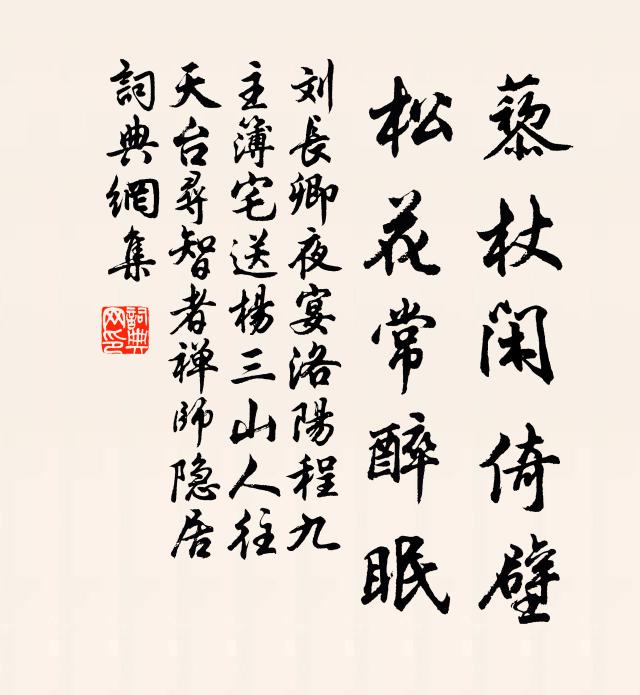 藜杖閑倚壁
松花常醉眠
刘長卿夜宴洛陽程九
主簿宅送楊三山人往
天台尋智者禅師隐居
詞典網集
詞典
网印